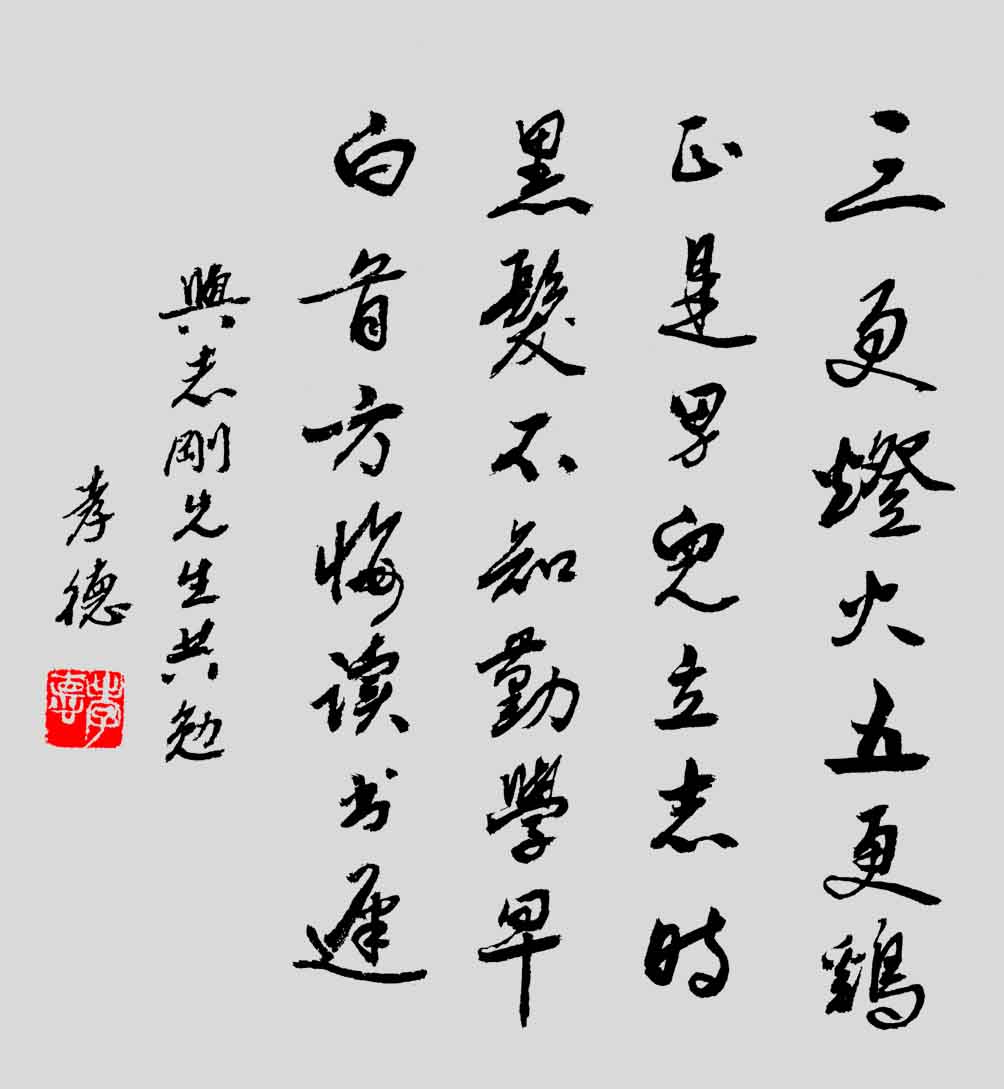 三更燈火五更鷄
正是男兒立志時
黑髮不知勤學早
白首方悔读书遲
與志剛先生共勉
孝德
孝德